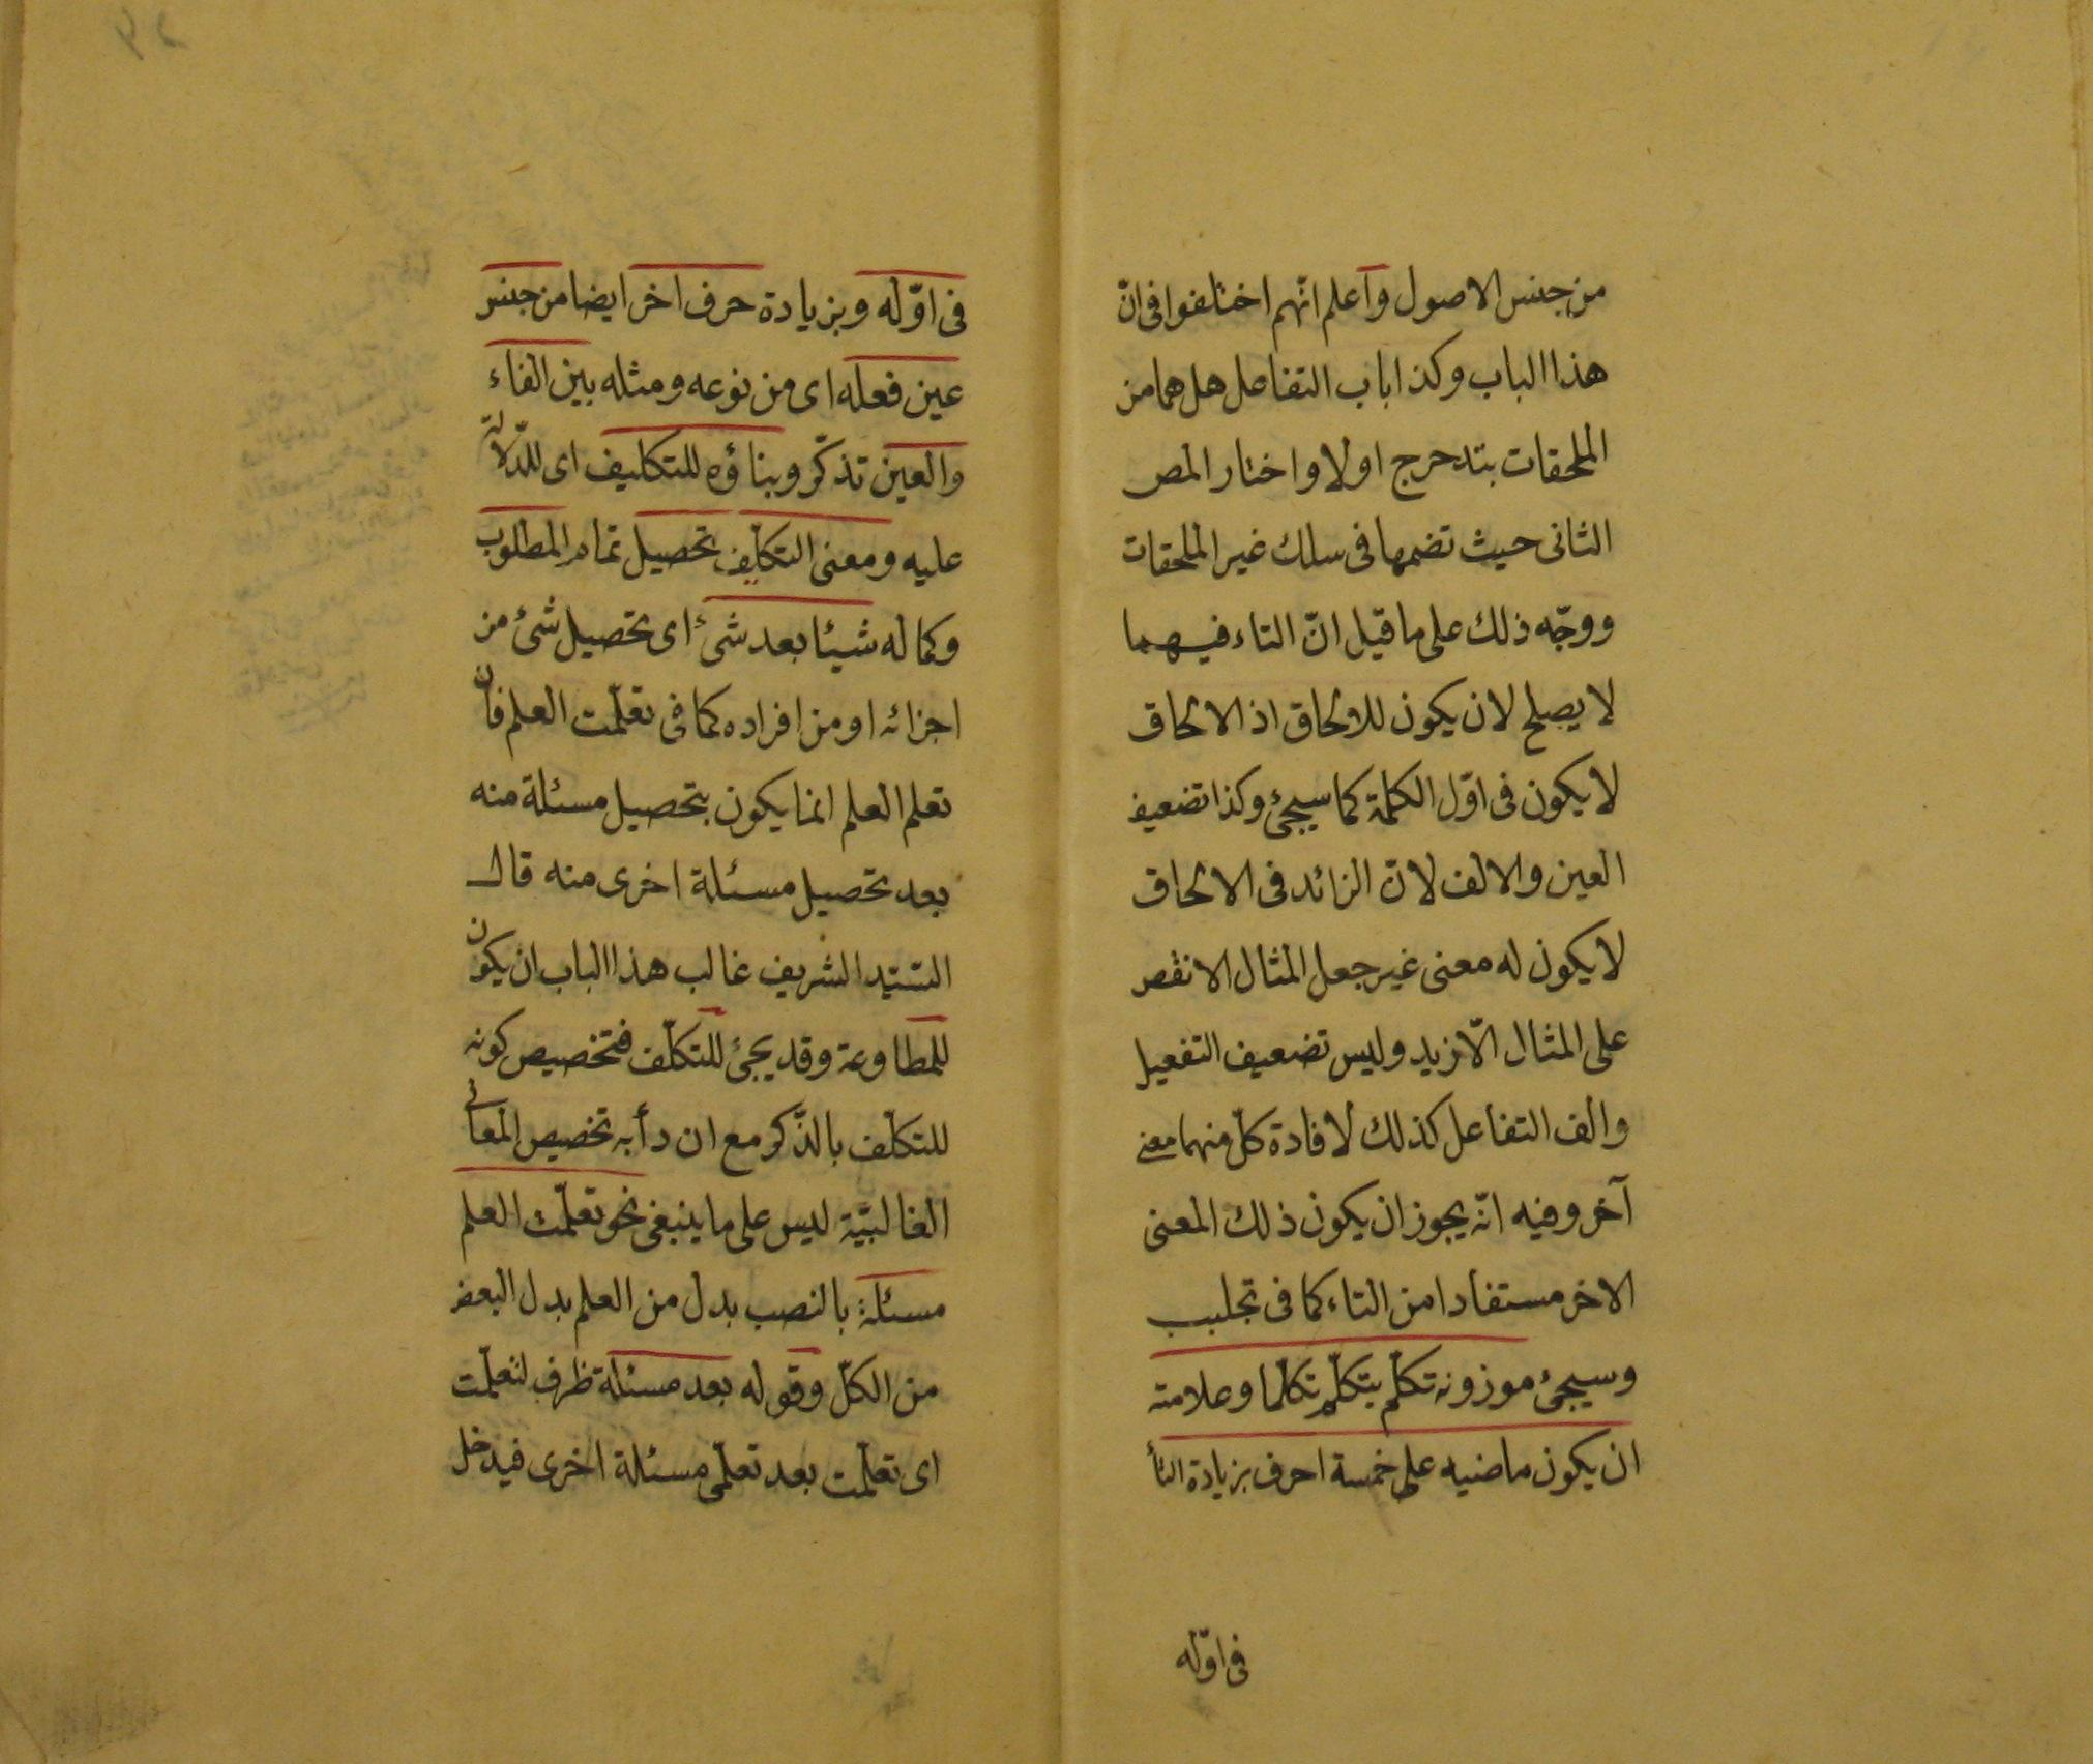 من جنس الاصول واعلم انّهم اختلفوا فى انّ
هذا الباب وكذا باب التفاعل هل هما من
الملحقات بتدحرج اولا واختار المص
الثانى حيث تضمها فى سلك غير الملحقات
ووجّه ذلك على ما قيل انّ التاء فيهما
لا يصلح لان يكون للالحاق اذ الالحاق
لا يكون فى اوّل الكلمة كما سيجئ وكذا تضعيف
العين والالف لانّ الزائد فى الالحاق
لا يكون له معنى غير جعل المثال الانقص
على المثال الازيد وليس تضعيف التفعيل
والف التفاعل كذلك لافادة كلّ منهما معنى
آخر وفيه انّه يجوز ان يكون ذلك المعنى
الاخر مستفادا من التاء كما فى تجلبب
وسيجئ موزونه تكلّم يتكلّم تكلّما وعلامته
ان يكون ماضيه على خمسة احرف بزيادة التأ
فى اوّله
فى اوّله وبزيادة حرف اخر ايضا من جنس
عين فعله اى من نوعه ومثله بين الفاء
والعين تذكّر وبناؤه للتكليف اى للدّلالة
عليه ومعنى التكلّف تحصيل تمام المطلوب
وكماله شيئا بعد شئ اى تحصيل شئ من
اجزائه او من افراده كما فى تعلّمت العلم فان
تعلم العلم انما يكون بتحصيل مسئلة منه
بعد تحصيل مسئلة اخرى منه قال
السّيّد الشريف غالب هذا الباب ان يكون
للمطاوعة وقد يجئ للتكلّف فتخصيص كونه
للتكلّف بالذّكر مع ان دأبه تخصيص المعانى
الغالبيّة ليس على ما ينبغى نحو تعلّمت العلم
مسئلة بالنصب بدل من العلم بدل البعض
من الكلّ وقوله بعد مسئلة ظرف لتعلّمت
اى تعلّمت بعد تعلّمى مسئلة اخرى فيدخل